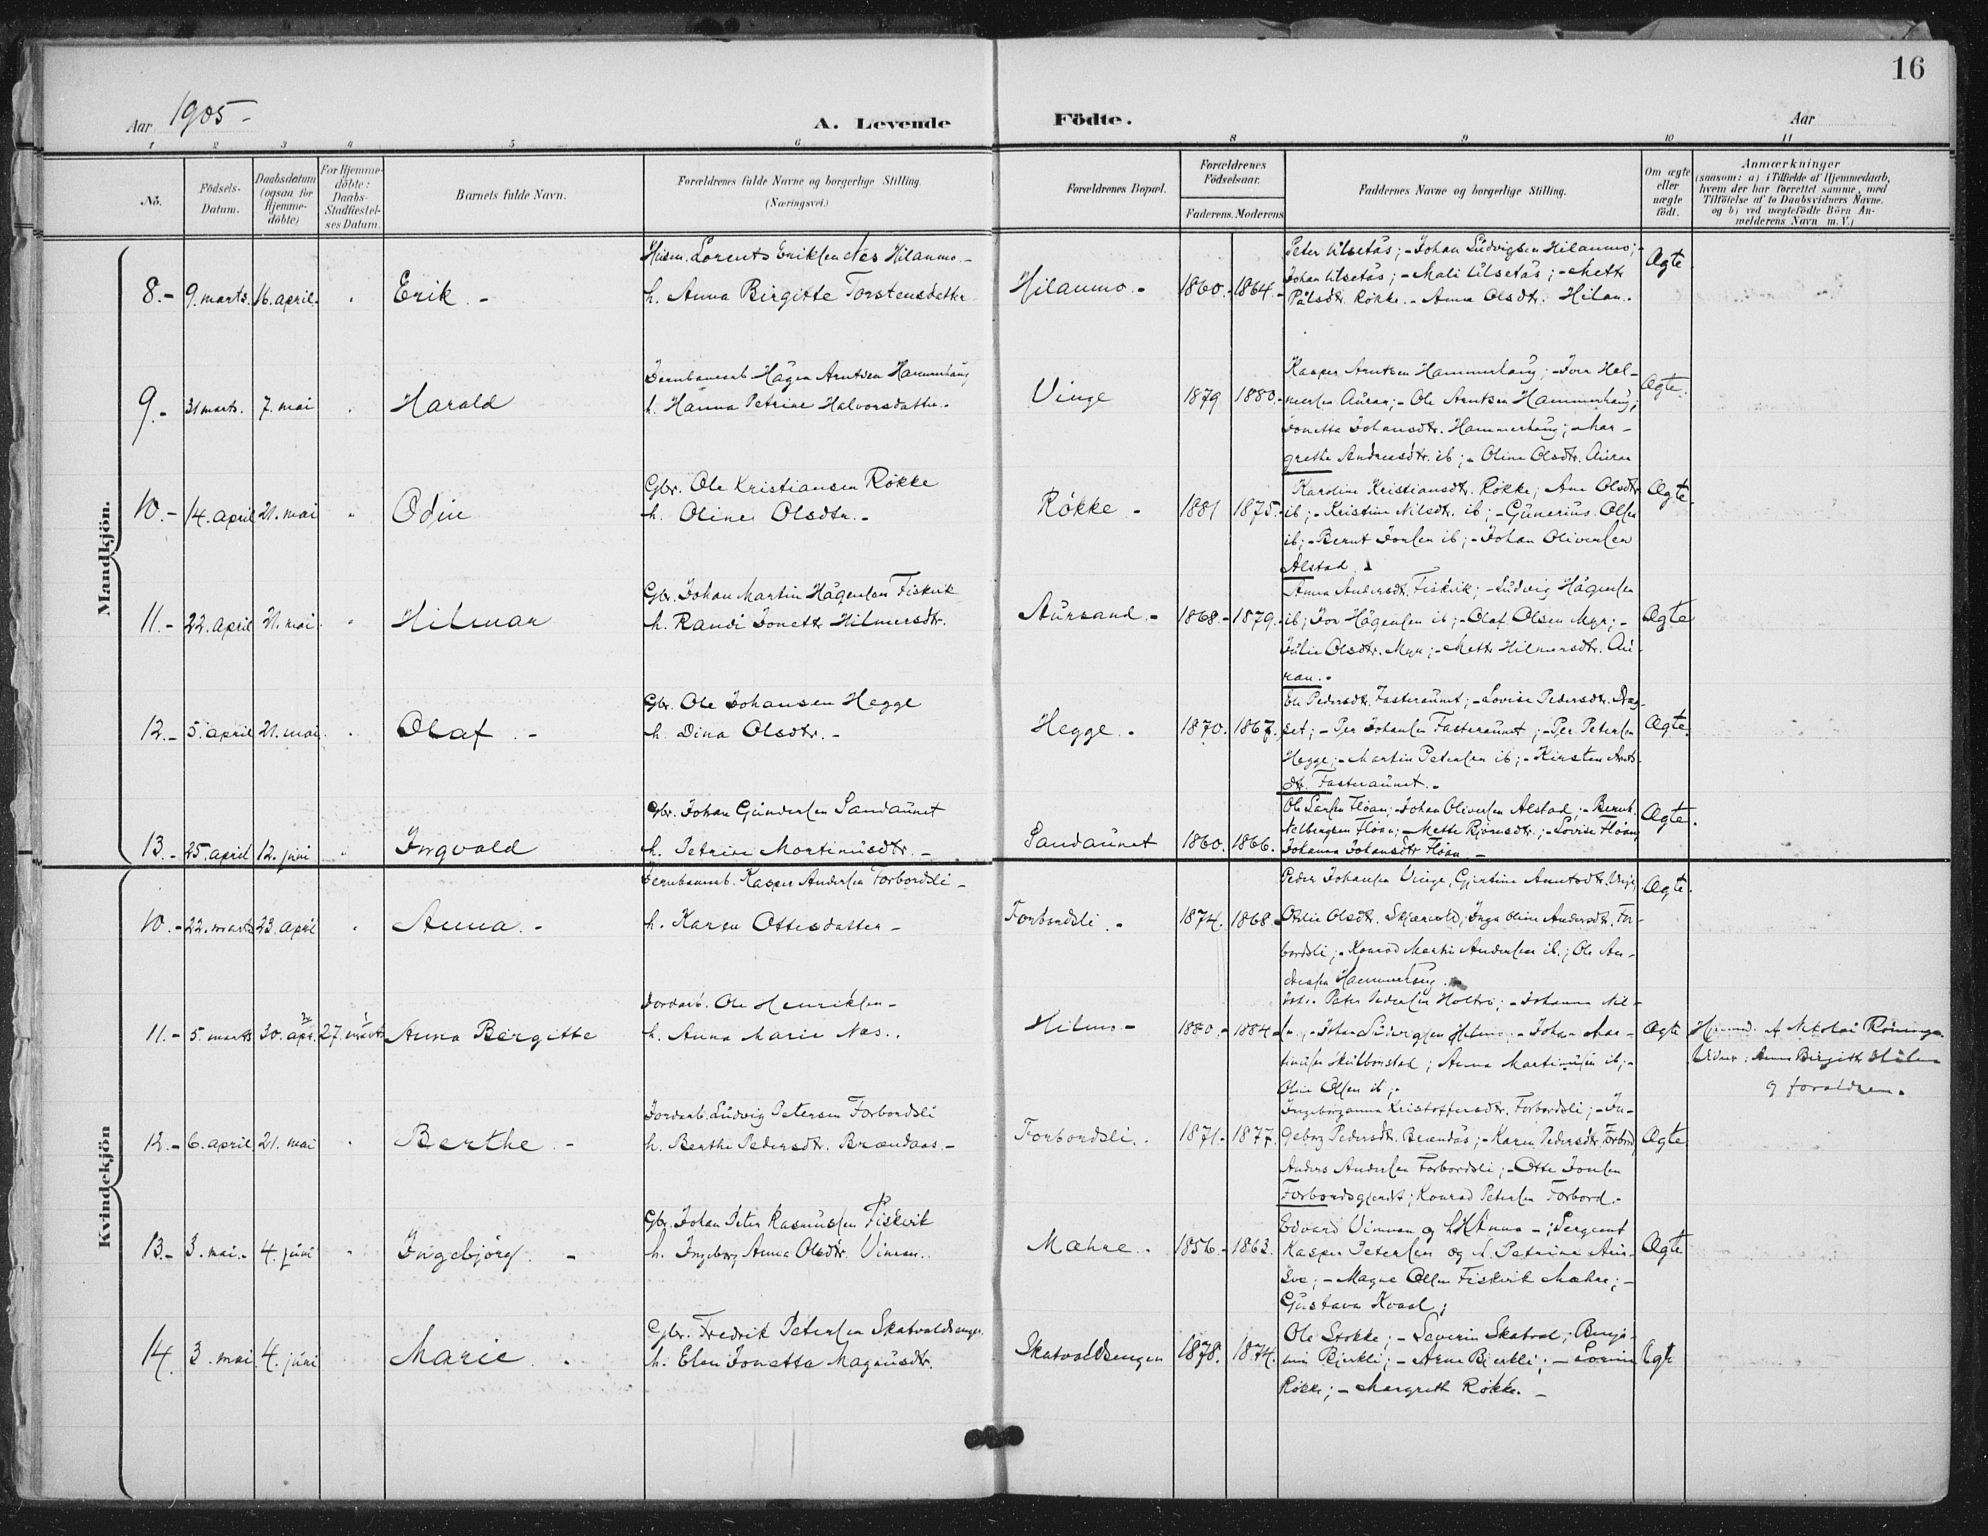 16
Aar 1905 -
A. Levende Födte.
Aar
1 2 3 4 5 6 8 9 10 11
No.
Födsels-Datum.
Daabsdatum (ogsaa for Hjemme-döbte)
For Hjemme-döbte: Daabs-Stadfæstel-ses Datum.
Barnets fulde Navn.
Forældrenes fulde Navne og borgerlige Stilling. (Næringsvei.)
Forældrenes Bopæl.
Forældrenes Födselsaar.
Faderens. Moderens
Faddernes Navne og borgerlige Stilling.
Om ægte eller uægte födt.
Anmærkninger
(saasom: a) i Tilfælde af Hjemmedaab,
hvem der har forrettet samme, med
Tilföielse af to Daabsvidners Navne.
og b) ved uægtefödte Börn An-
melderens Navn m. V.)
Mandkjön.
8.- 9. marts. 16. april. " Erik. -
Husm. Lorents Eriksen Næs Hilanmo. -
h. Anna Birgitte Torstensdatter
Hilanmo. - 1860.- 1864.-
Peter Ulsetås; - Johan Ludvigsen Hilanmo; -
Johan Ulsetås; - Mali Ulsetås; - Mette
Pålsdtr. Røkke. - Anna Olsdtr. Hilan.
Ægte
9.- 31 marts. 7. mai " Harald
Jernbanearb. Hågen Arntsen Hammerhaug
h. Hanna Petrine Halvorsdatter. -
Vinge 1879 1880.-
Kasper Arntsen Hammerhaug; - Ivar Hal-
mersen Auran; - Ole Arntsen Hammerhaug;
Jonetta Johansdtr. Hammerhaug; - Mar-
grethe Andreasdtr. ib; - Oline Olsdtr. Auran
Ægte.
10.- 14. april 21. mai " Odin
Gbr. Ole Kristiansen Røkke
h. Oline Olsdtr. -
Røkke - 1881 1875.-
Karoline Kristiansdtr. Røkke; Ane Olsdtr.
ib; - Kristine Nilsdtr. ib; - Gunerius Olsen
ib; - Bernt Jonsen ib; - Johan Oliversen
Alstad.
Ægte.
11.- 22. april 21. mai " Hilmar
Gbr. Johan Martin Hågensen Fiskvik
h. Randi Jonette Hilmersdtr.
Aursand. - 1868.- 1879.-
Anna Andersdtr. Fiskvik; - Ludvig Hågensen
ib; Jon Hågensen ib; - Olaf Olsen Myr; -
Julie Olsdtr. Myr; - Mette Hilmersdtr. Au-
ran. -
Ægte
12.- 5. april 21. mai. " Olaf. -
Gbr. Ole Johansen Hegge
h. Dina Olsdtr. -
Hegge. - 1870. 1867.
Eli Pedersdtr. Fasteraunet; - Lovise Pedersdtr. Drag-
set; - Per Johansen Fasteraunet; - Per Petersen
Hegge; - Martin Petersen ib; - Kirsten Arnts-
dtr. Fasteraunet. -
Ægte.
13.- 25. april 12. juni " Ingvald
Gbr. Johan Gundersen Sandaunet
h. Petrine Martinusdtr. -
Sandaunet 1860. 1866.
Ole Larsen Fløan; - Johan Oliversen Alstad; - Bernt
Fløan; - Mette Bjørnsdtr.; - Lovise Fløan;
Johanna Johansdtr Fløan -
Ægte.
Kvindekjön
10.- 22. marts 23. april " Anna. -
Jernbanearb. Kasper Andersen Forbordsli -
h. Karen Ottesdatter -
Forbordsli. - 1874. 1868.-
Peder Johansen Vinge, Gjertine Arntsdtr. Vinge,
Otilie Olsdtr. Skjervold; Inga Oline Andersdtr. For-
bordsli; - Konrad Martin Andersen ib.; Ole An-
dersen Hammerhaug.
Ægte.
11.- 5. marts 30. apr. 27. marts Anna Bergitte
Jordarb. Ole Henriksen -
h. Anna Marie Næs.
Hilmo - 1880.- 1884.-
Peter Pedersen Holten; - Johanna Nil-
Johan Ludvigsen Hilmo; - Johan Mar-
tinusen Skulbørstad; Anna Martinusen ib; -
Oline Olsen ib; -
Ægte
Hjemmed. af Nikolai
Vidner: Anna Birgitte
og forældren. -
12.- 6. april 21. mai " Berthe. -
Jordarb. Ludvig Petersen Forbordsli
h. Berthe Pedersdtr. Brændaas. -
Forbordsli. 1871.- 1877.
Ingeborganna Kristoffersdtr. Forbordsli; - In-
geborg Pedersdtr. Brændås; - Karen Pedersdtr. Forbord;
Anders Andersen Forbordsli; - Otte Jonsen
Forbordsgjerdet; Konrad Petersen Forbord. -
Ægte
13.- 3. mai. - 4. juni " Ingebjörg. -
Gbr. Johan Peter Rasmussen Fiskvik
h. Ingeborg Anna Olsdtr. Vinnan.
Mæhre. - 1856.- 1863.
Edvard Vinnan og h. Anna -; Sergeant
Kasper Petersen og h. Petrine
- Magne Olsen Fiskvik Mæhre; -
Gustava Kvaal;
Ægte
14. 3. mai 4. juni Marie. -
Gbr. Fredrik Petersen Skatvoldsengen.
h. Elen Jonetta Magnusdtr.
Skatvoldsengen 1878. 1874.
Ole Stokke; - Severin Skatvol; Benja-
min Bjerkli; - Arne Bjerkli; -
Røkke; - Margreth Røkke. -
Ægte